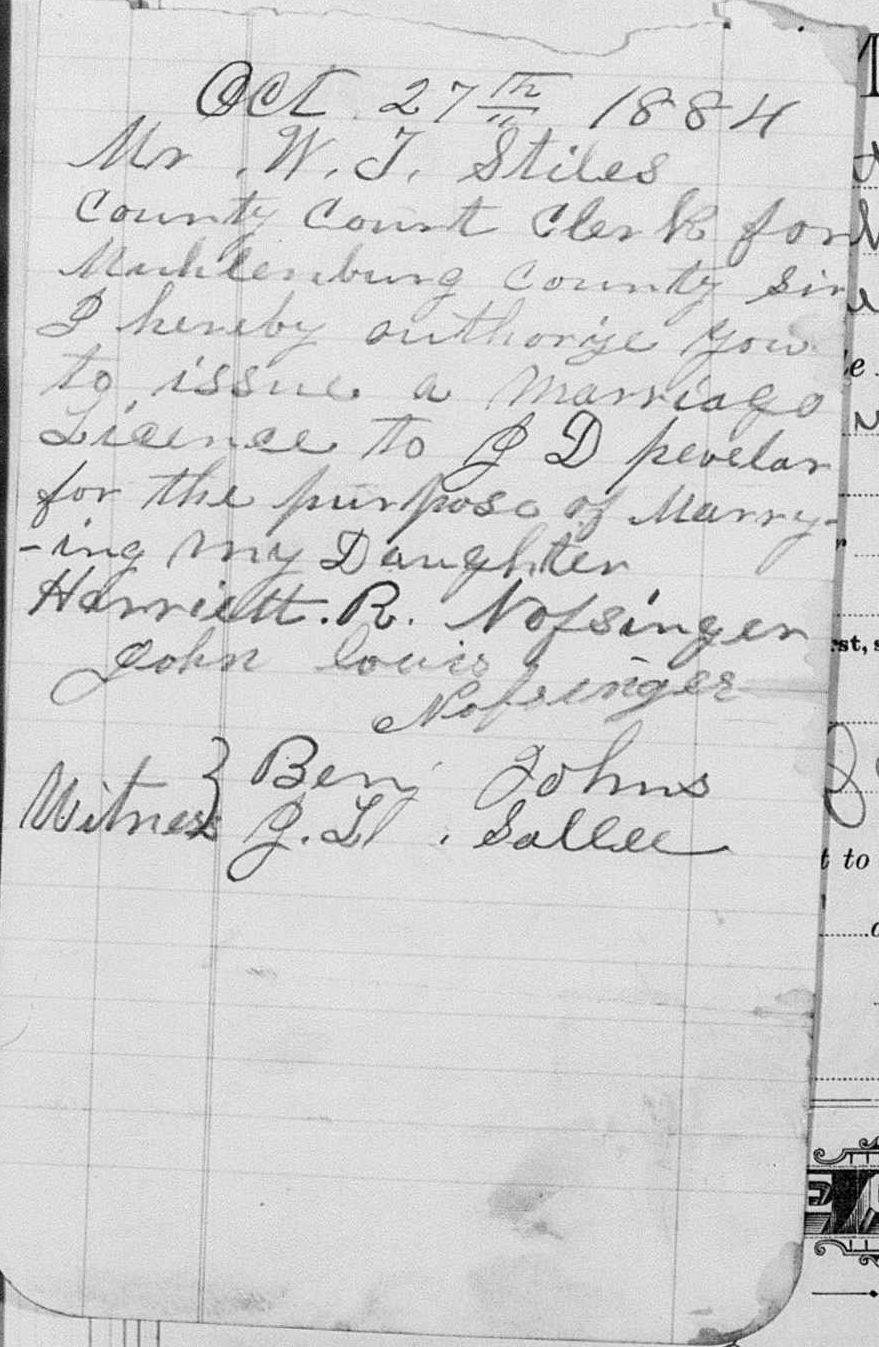 Oct. 27th 1884
Mr. W. T. Stiles
County Court Clerk for
Muhlenburg County Sir
I hereby authorize you
to issue a Marriage
Licence to J D pevelar
for the purpose of Marry-
-ing my Daughter
Harriett. R. Nofsinger
John Louis
Nofsinger
Witness } Ben Johns
J. L. Sallee
st, s
t to